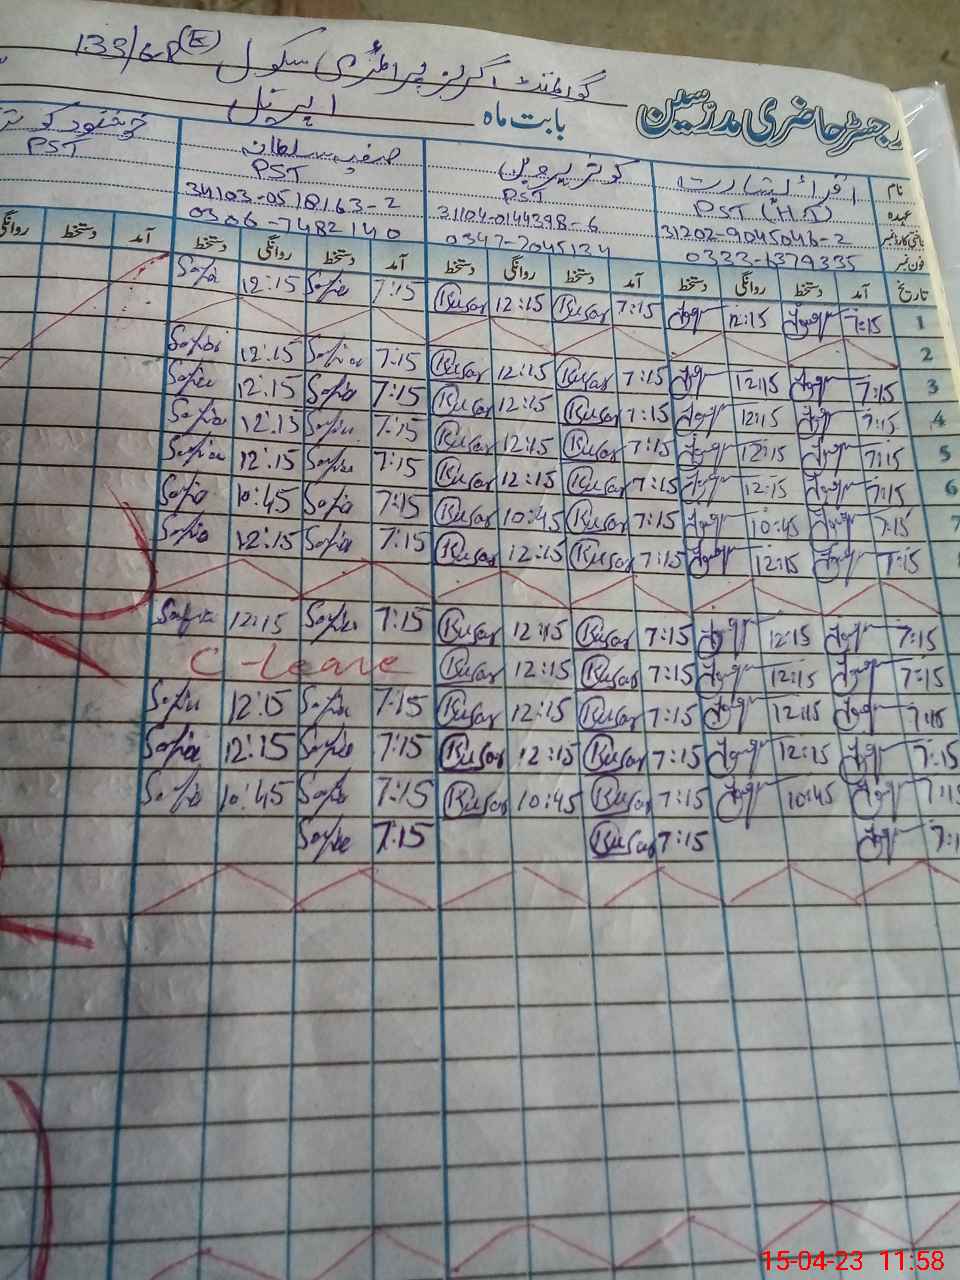 گورنمنٹ گرلز پرائمری سکول 133/6-R (E)
رجسٹر حاضری مدرسین بابت ماہ اپریل
نام اقراء بشارت کوثر پروین صفیہ سلطان
عہدہ PST (H.T) PST PST PST
شناختی کارڈ نمبر 31202-9045046-2 31104-0144398-6 34103-0518163-2
فون نمبر 0333-1379335 0347-7045134 0306-7482140
تاریخ آمد دستخط روانگی دستخط آمد دستخط روانگی دستخط آمد دستخط روانگی دستخط آمد دستخط روانگی
1 7:15 12:15 7:15 Busar 12:15 Busar 7:15 Safia 12:15 Safia
2
3 7:15 12:15 7:15 Busar 12:15 Busar 7:15 Safia 12:15 Safia
4 7:15 12:15 7:15 Busar 12:15 Busar 7:15 Safia 12:15 Safia
5 7:15 12:15 7:15 Busar 12:15 Busar 7:15 Safia 12:15 Safia
6 7:15 12:15 7:15 Busar 12:15 Busar 7:15 Safia 12:15 Safia
7 7:15 10:45 7:15 Busar 10:45 Busar 7:15 Safia 10:45 Safia
7:15 12:15 7:15 Busar 12:15 Busar 7:15 Safia 12:15 Safia
7:15 12:15 7:15 Busar 12:15 Busar 7:15 Safia 12:15 Safia
7:15 12:15 7:15 Busar 12:15 Busar C-leave
7:15 12:15 7:15 Busar 12:15 Busar 7:15 Safia 12:15 Safia
7:15 12:15 7:15 Busar 12:15 Busar 7:15 Safia 12:15 Safia
7:15 10:45 7:15 Busar 10:45 Busar 7:15 Safia 10:45 Safia
7:15 Busar 7:15 Safia
15-04-23 11:58